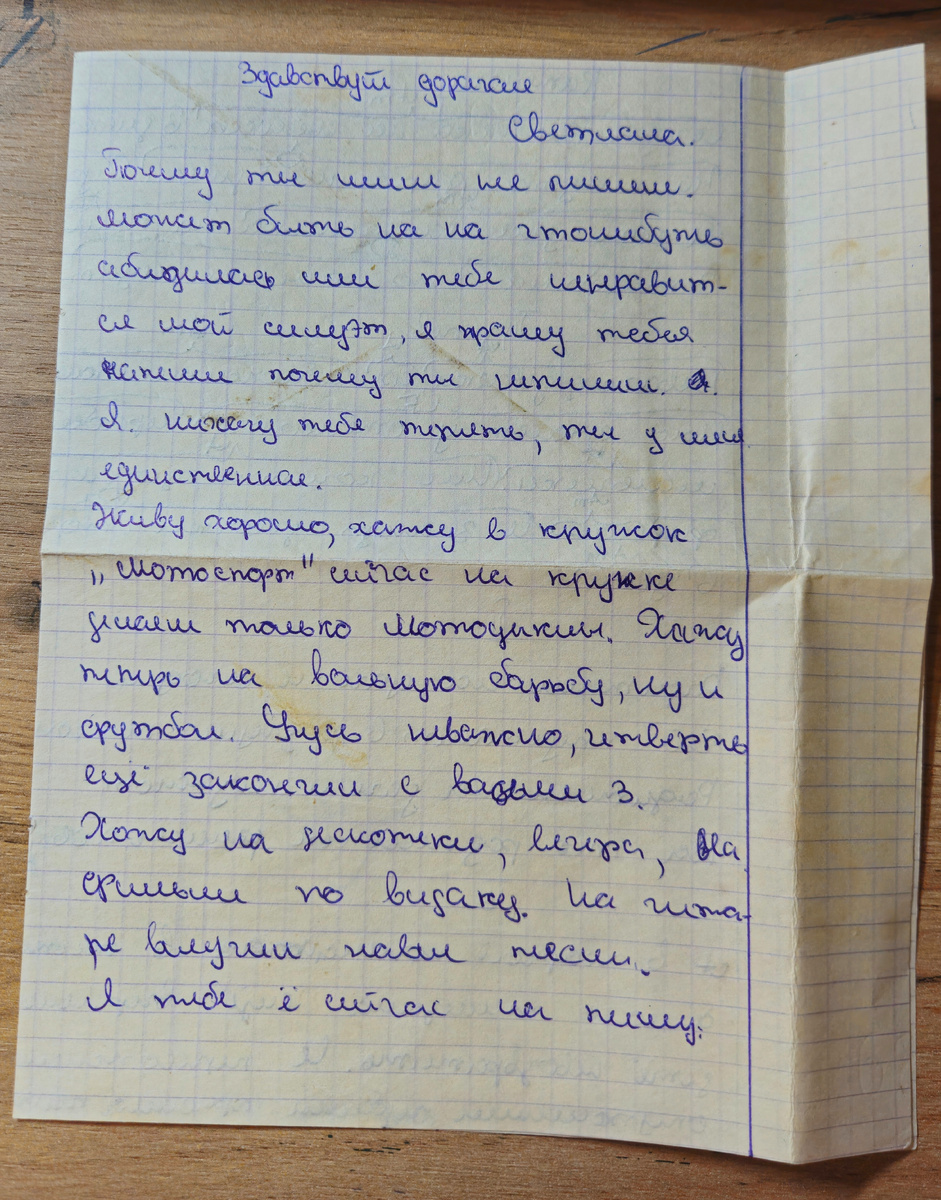 Здавствуй дорагая
Светлана.
Почему ты мни не пишиш.
может быть на на чтонибуть
абидилась или тебе ненравит-
ся мой силуэт, я прашу тебея
напиши почему ты нипишиш.
Я. нихачу тебе терять, ты у миня
единственная.
Живу хорошо, хажу в кружок
„Мотоспорт" сичас на кружке
делаем только мотоциклы. Хажу
теперь на вольную барьбу, ну и
футбол. Учусь неважно, четверть
ещё закончил с вадьми 3.
Хожу на дискотеки, вечера, на
фильмы по видаку. На гита-
ре вывучил навыи песни.
Я тебе ё сичас на пишу: